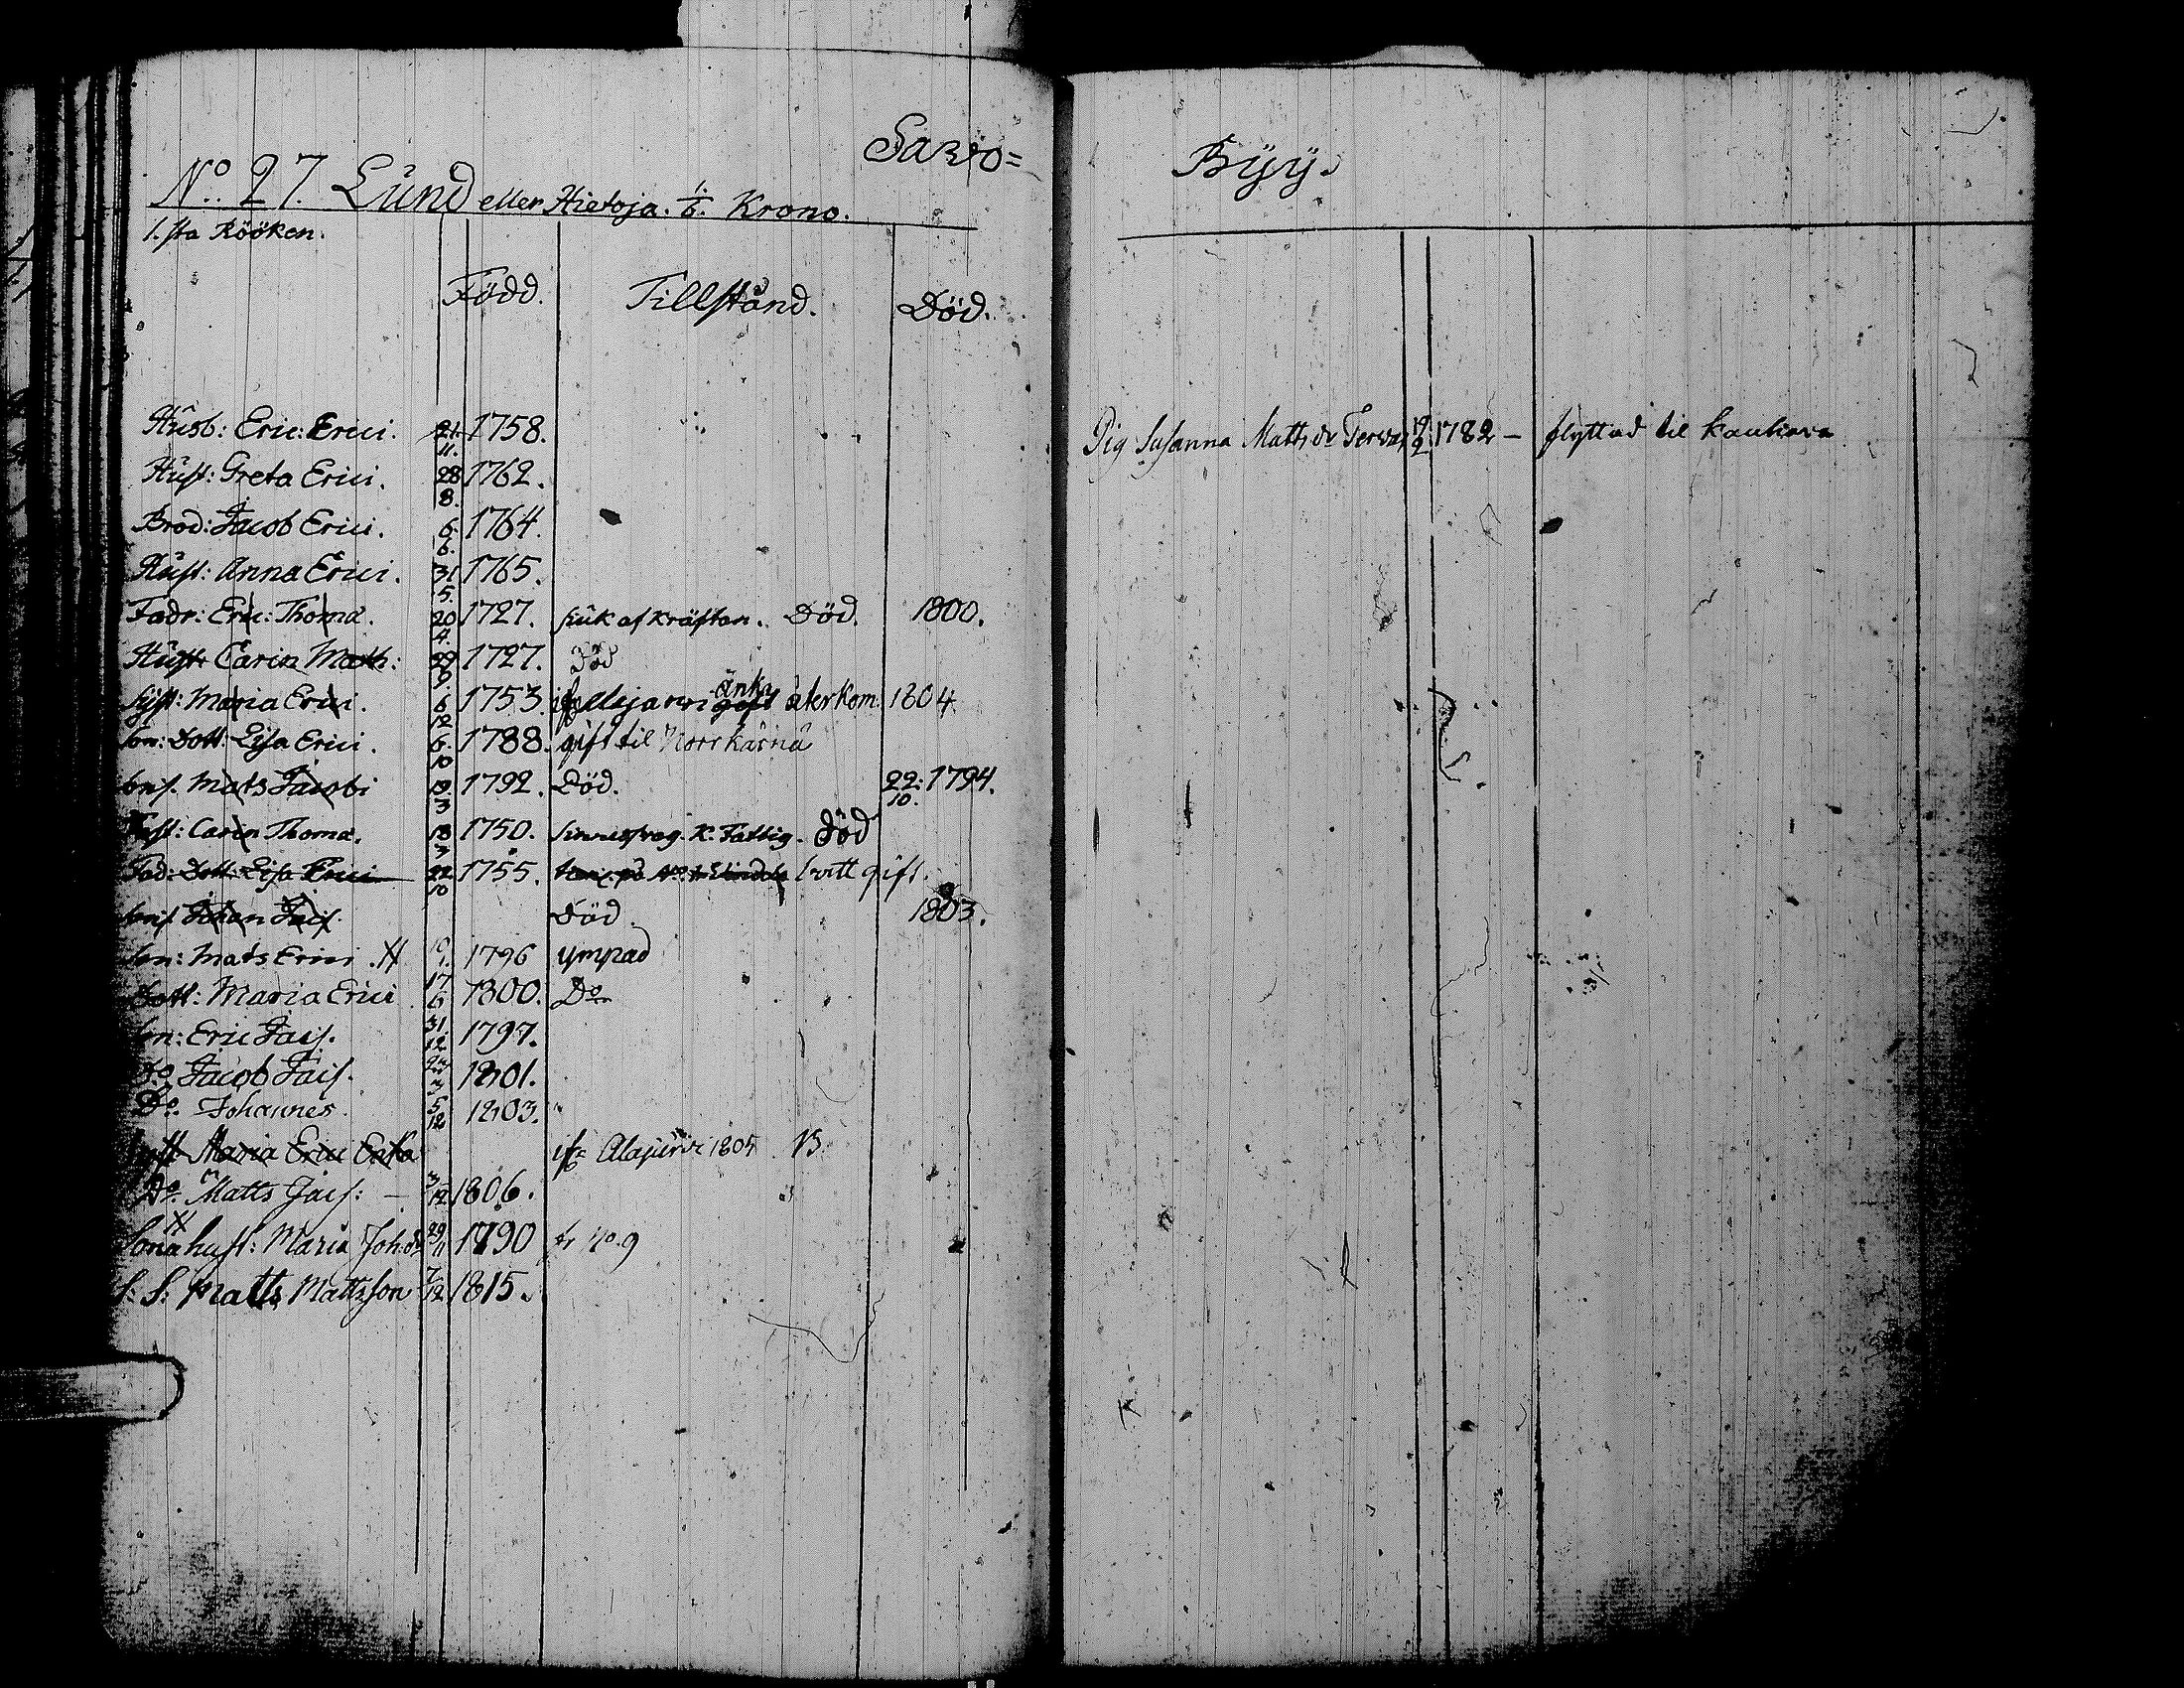 Sawo=
No. 27. Lund eller Hietoja. 1/6. Krono.
1.sta Rööken.
Född. Tillstånd. Död.
Husb: Eric: Erici. 21. 11. 1758.
Hust: Greta Erici. 28 8. 1762.
Brod: Jacob Erici. 6. 6. 1764.
Hust: Anna Erici. 31 5. 1765.
Fadr: Eric: Thoma. 20 4. 1727. siuk af kräftan. Död. 1800.
Hust: Carin Math: 29 9. 1727. Död
Syst: Maria Erici. 6 12 1753 enka återkom. 1804
Son: Dott: Lisa Erici. 6. 10 1788. gift til Norrkärnä
Mats Jacobi 19. 3 1792. Död. 22: 10. 1794.
Carin Thoma. 18 3 1750. K. Fattig. död
Fad: Dott: Lisa Erici 22 10 1755. gift.
Johan Jacs. död 1803.
Son: Mats Erici .# 10. 9. 1796 ympad
Dott: Maria Erici 17 6 1800. Do
Son: Eric Jacs. 31. 12 1797.
Do Jacob Jacs. 1801.
Do. Johannes. 5 12 1803.
Syst Maria Erici Enka ifr Alajärvi 1804 B
Do. Matts Jacs: — 3 12 1806.
#
Sona hust: Maria Joh:dr 29 11 1790 fr No. 9
S: S: Matts Mattsson 7 12 1815.
Byy.
Pig Susanna Matts dr 19 2 1782 — flyttad til Kauhava